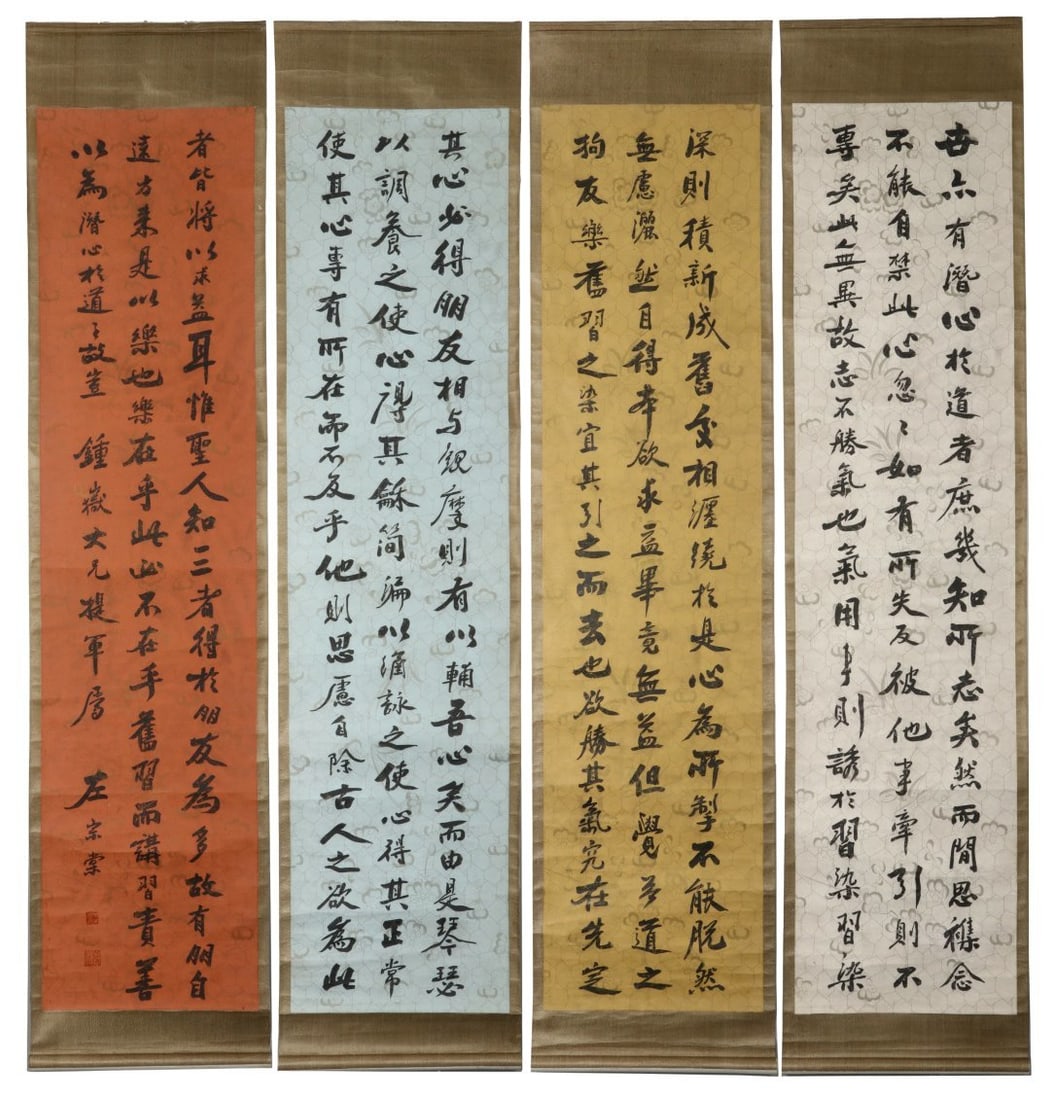 世亦有潛心於道者庶幾知所志矣然而閒思襍念
不能自禁此心忽〻如有所失反被他事牽引則不
專矣此無異故志不勝氣也氣用事則誘於習染習染
深則積新成舊交相纏繞於是心為所掣不能脫然
無慮灑然自得卒欲求益畢竟無益但覺茲道之
拘友樂舊習之染宜其引之而去也欲勝其氣究在先定
其心必得朋友相与觀摩則有以輔吾心矣而由是琴瑟
以調養之使心得其龢簡編以諷詠之使心得其正常
使其心專有所在而不及乎他則思慮自除古人之欲為此
者皆將以求益耳惟聖人知三者得於朋友為多故有朋自
遠方來是以樂也樂在乎此必不在乎舊習而講習責善
以為潛心於道〻故豈 鍾嶽大兄提軍屬
左宗棠